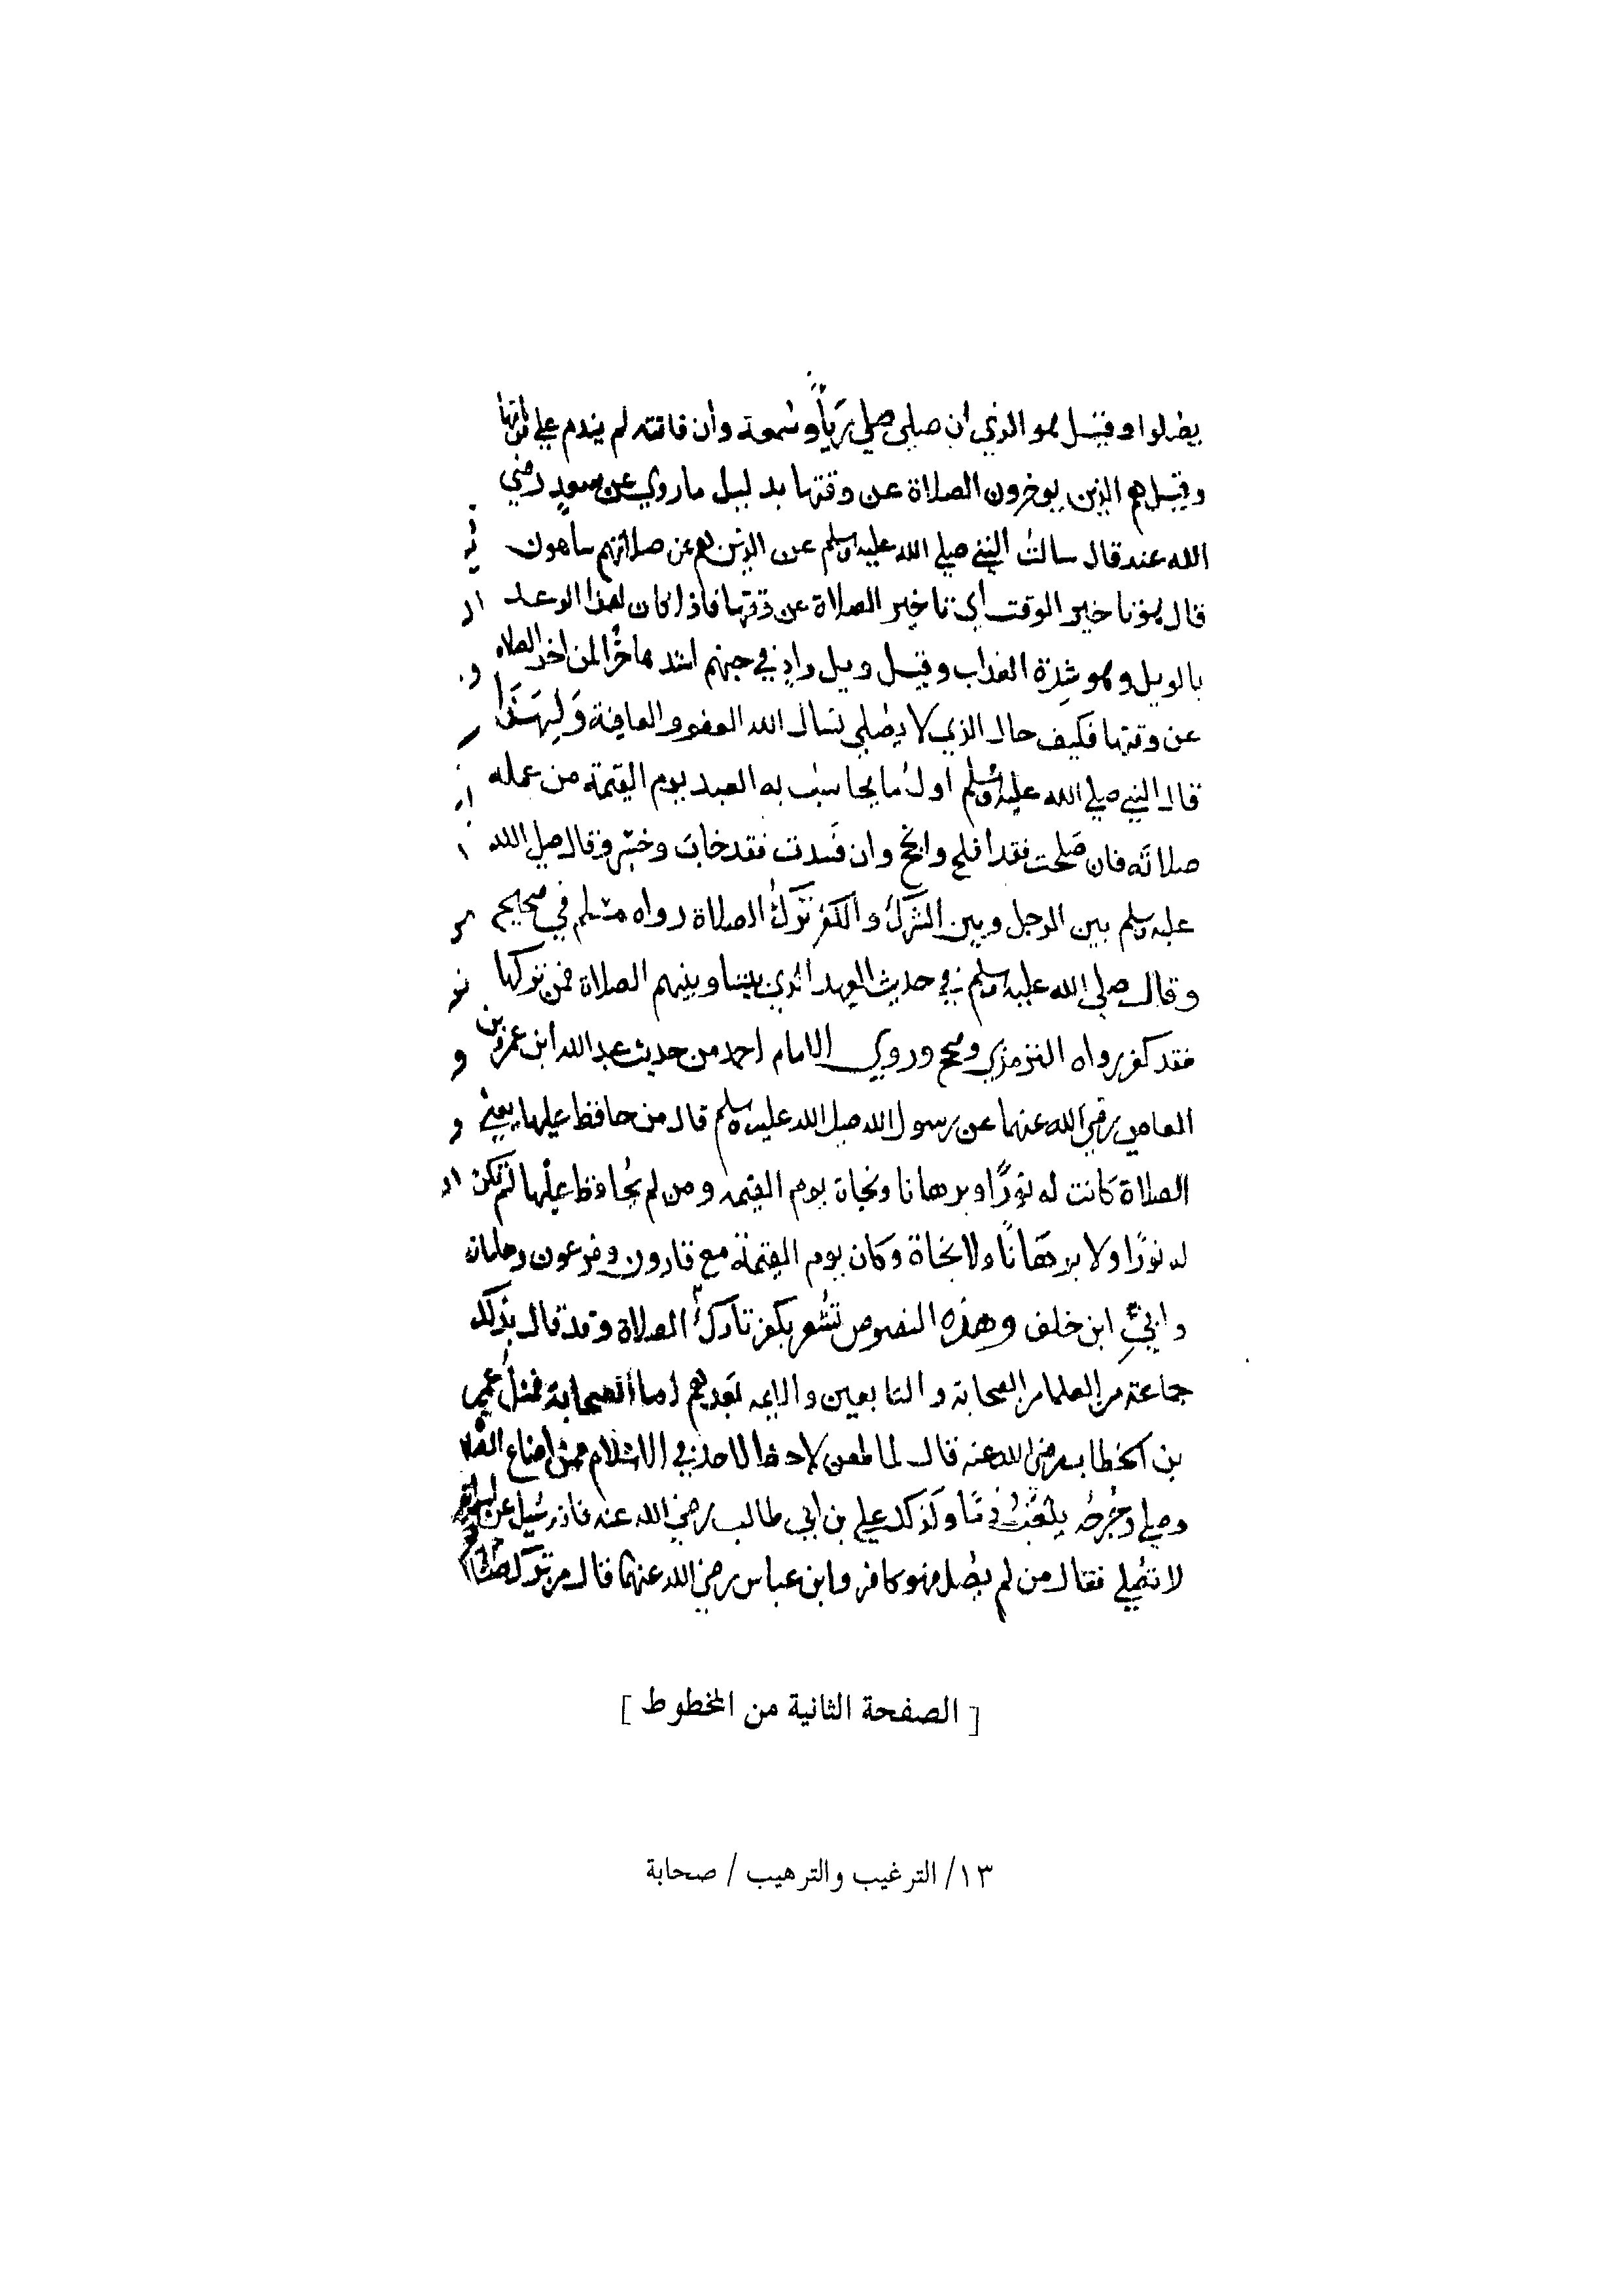 يصلوا وقيل هو الذي ان صلى صلى رياً وسمعة وان فاتته لم يندم على فواتها
وقيل هم الذين يوخرون الصلاة عن وقتها بدليل ماروي عن سعدٍ رضي
الله عنه قال سالت النبي صلي الله عليه وسلم عن الذين هم عن صلاتهم ساهون
قال هو تاخير الوقت اي تاخير الصلاة عن وقتها فاذا كان هذا الوعد
بالويل وهو شدة العذاب وقيل ويل وادٍ في جهنم اشد ها حرًّا لمن اخر الصلاه
عن وقتها فكيف حال الذي لا يصلي نسال الله العفو والعافية وَلِهَذَا
قال النبي صلي الله عليه وسلم اول ما يحاسب به العبد يوم القيمة من عمله
صلاته فان صَلحت فقد افلح وانجح وان فسدت فقد خاب وخسر وقال صلى الله
عليه وسلم بين الرجل وبين الشرك والكفر ترك الصلاة رواه مسلم في صحيحه
وقال صلى الله عليه وسلم في حديث العهد الذي بيننا وبينهم الصلاة فمن تركها
فقد كفر رواه الترمذي وصححه وروي الامام احمد من حديث عبد الله ابن عمرو بن
العاص رضي الله عنهما عن رسول الله صلى الله عليه وسلم قال من حافظ عليها يعني
الصلاة كانت له نورًا وبرهانا ونجاة يوم القيمه ومن لم يُحافظ عليها لم تكن
له نورًا ولا برهانًا ولا نجاة وكان يوم القيمة مع قارون وفرعون وهامان
وابيِّ ابن خلف وهذه النصوص تشعر بكفر تارك الصلاة وقد قال بذلك
جماعة من العلما من الصحابة والتابعين والايمه بعدهم اما الصحابة فمثل عمر
بن الخطاب رضى الله عنه قال لما طعن لا حظ لاحد في الاسلام ممن اضاع الصلاه
وصلى وجرحه يثعب دمًا وكذلك علي بن ابي طالب رضي الله عنه فاذ سُيل عن
لا تصلي فقال من لم يصل فهو كافر وابن عباس رضي الله عنهما قال من ترك
[ الصفحة الثانية من المخطوط ]
١٣/ الترغيب والترهيب / صحابة